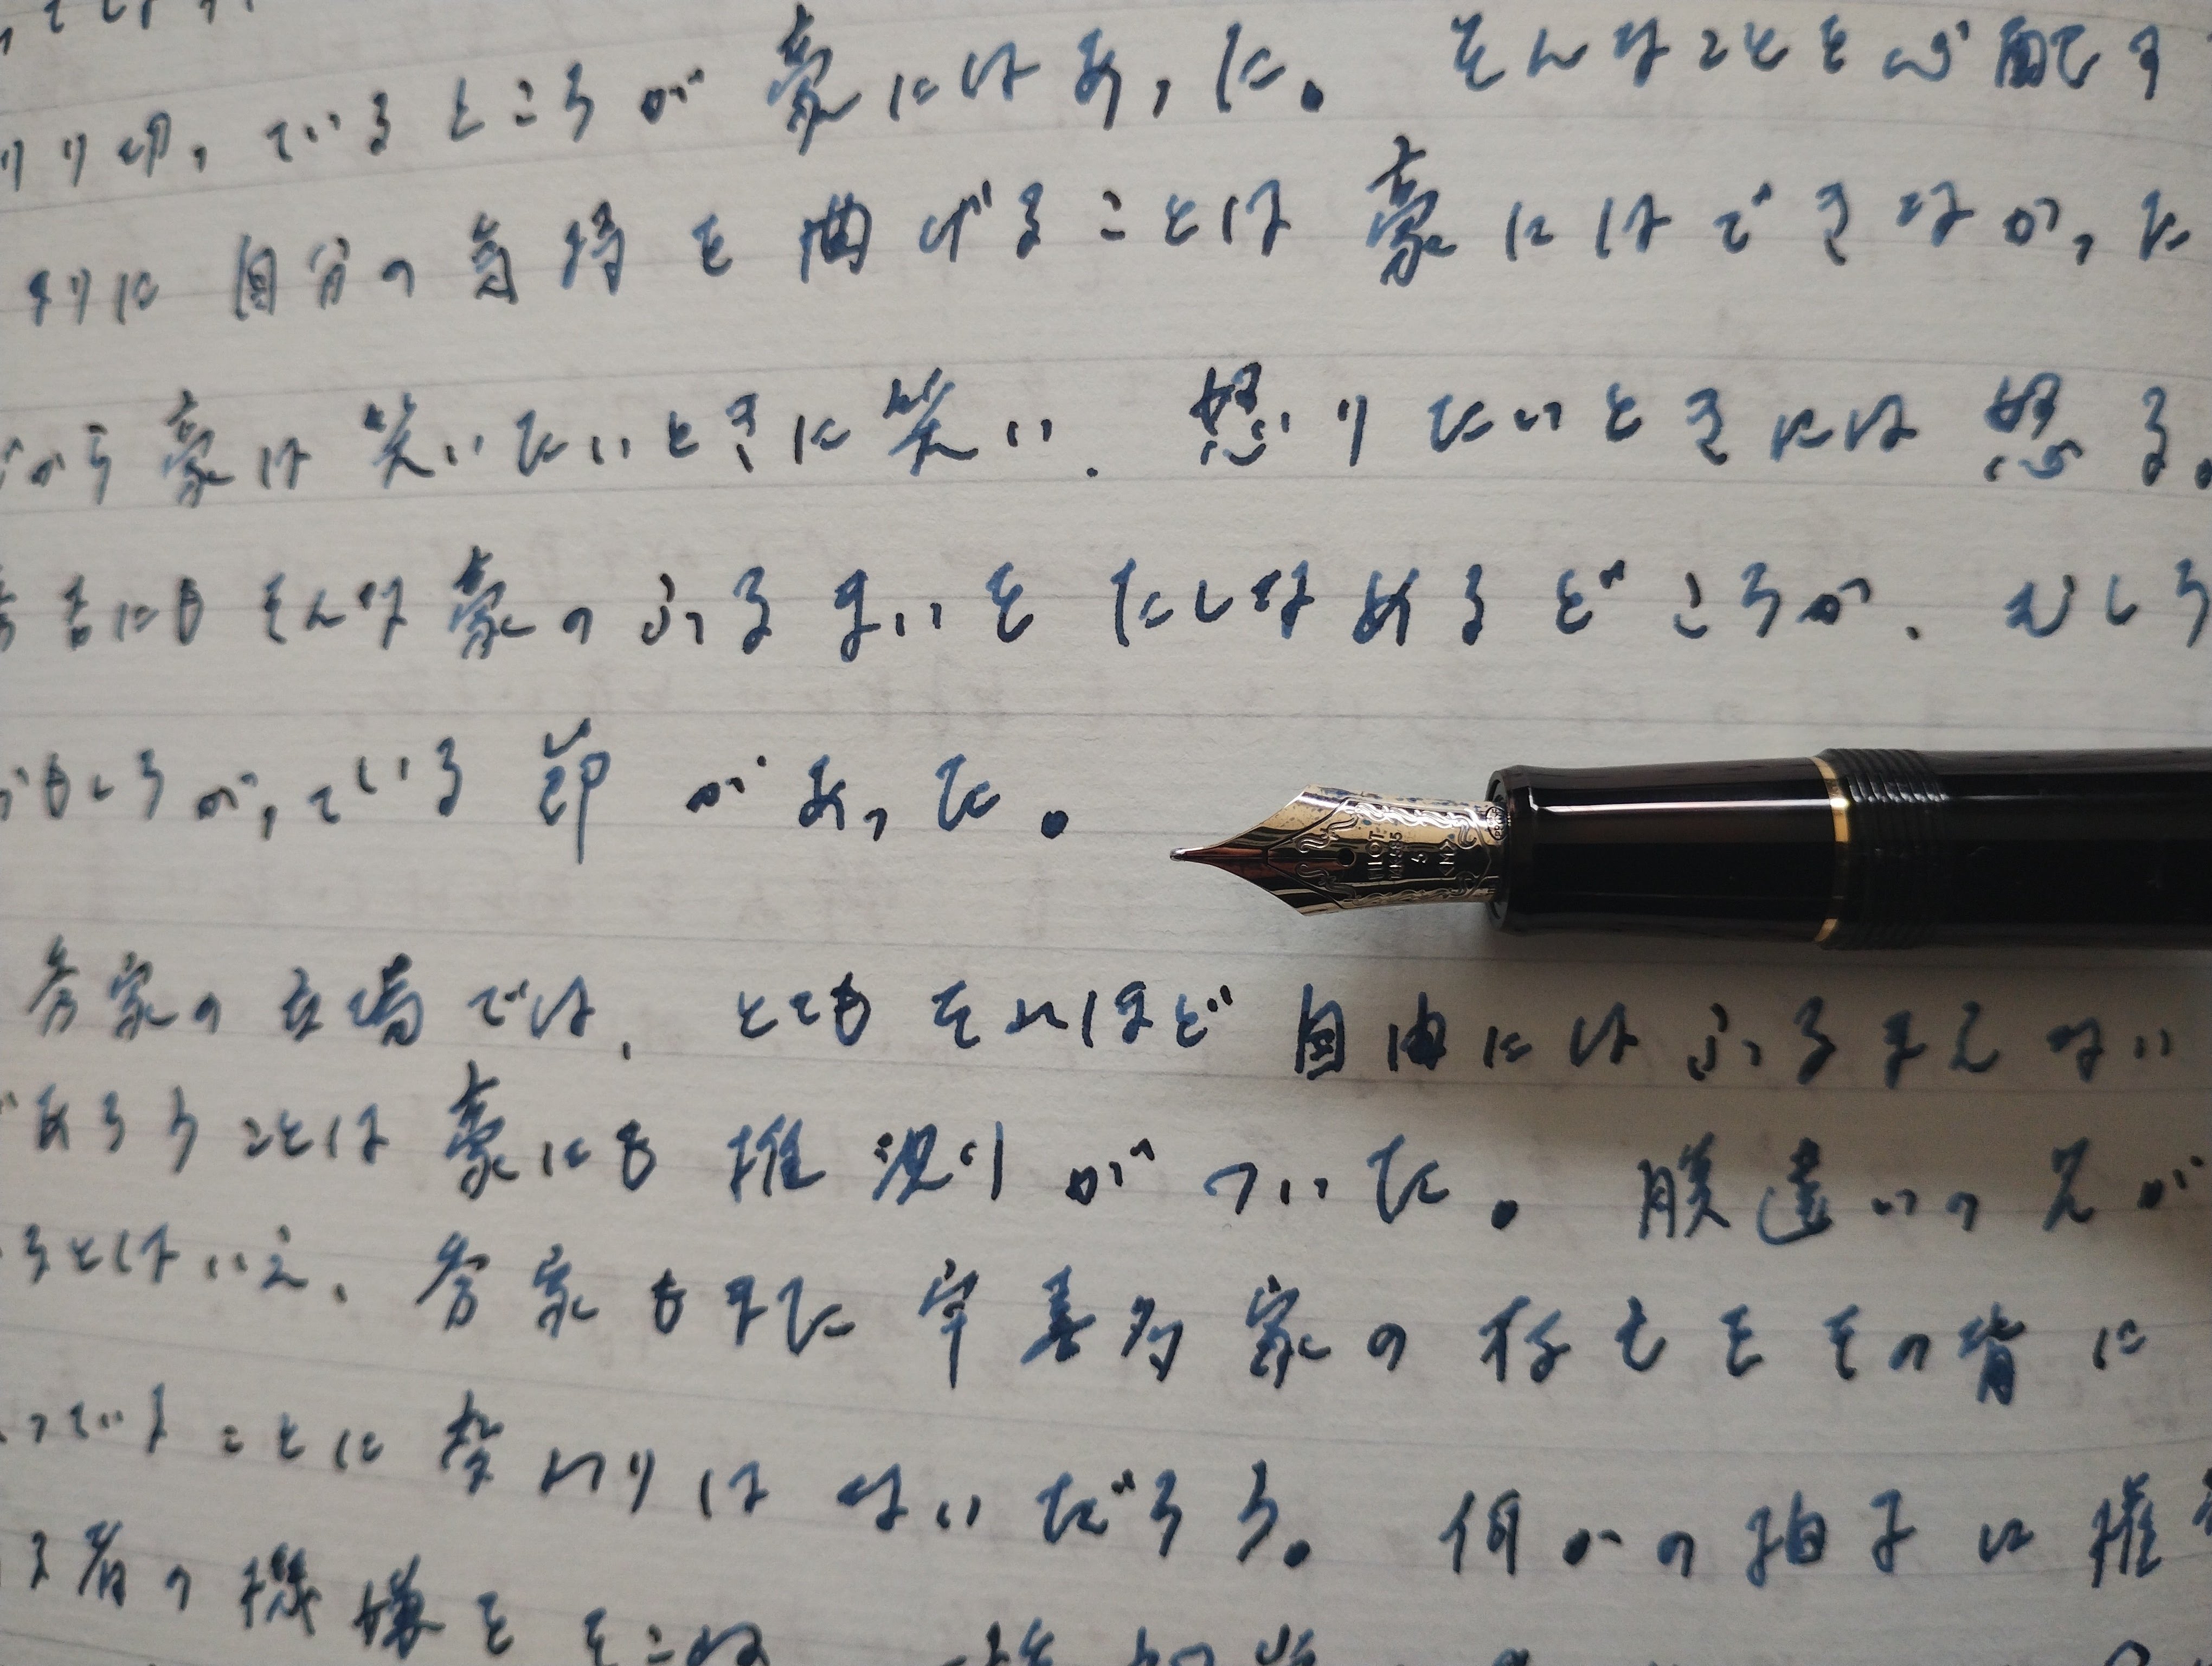 り切っているところが豪にはあった。そんなことを心配す
りに自分の気持を曲げることは豪にはできなかった
から豪は笑いたいときに笑い、怒りたいときには怒る。
秀吉にもそんな豪のふるまいをたしなめるどころか、むしろ
おもしろがっている節があった。
PILOT
14K-585
5
秀家の立場では、とてもそれほど自由にはふるまえない
であろうことは豪にも推測りがついた。腹違いの兄が
るとはいえ、秀家もまた宇喜多家の存亡をその背に
っていることに変わりはないだろう。何かの拍子に権
る者の機嫌をそこね